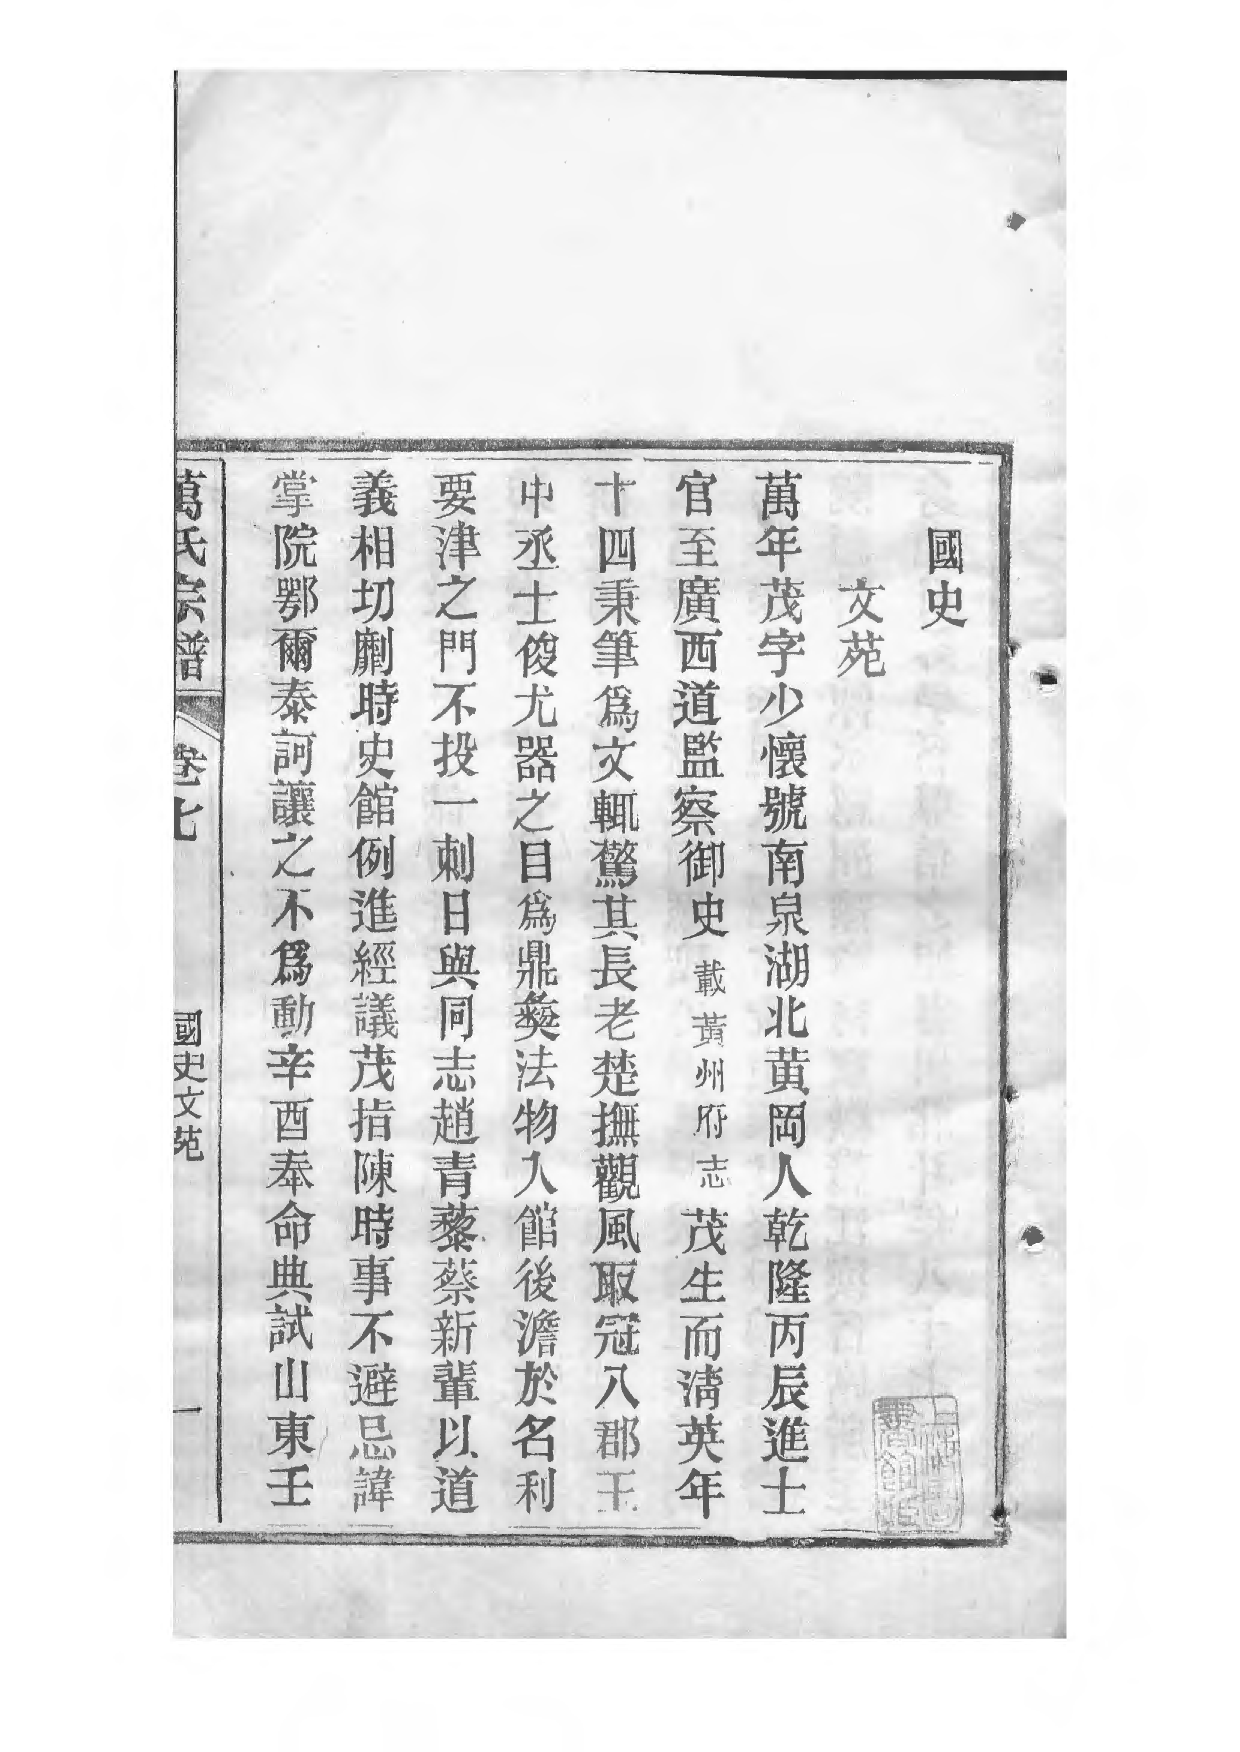 國史
文苑
萬年茂字少懷號南泉湖北黄岡人乾隆丙辰進士
官至廣西道監察御史載黄州府志茂生而淸英年
十四秉筆爲文輒驚其長老楚撫觀風取冠八郡王
中丞士俊尤器之目爲鼎彜法物入館後澹於名利
要津之門不投一刺日與同志趙青藜蔡新輩以道
義相切劘時史館例進經議茂指陳時事不避忌諱
掌院鄂爾泰訶讓之不爲動辛酉奉命典試山東壬
萬氏宗譜
卷七
國史文苑
一